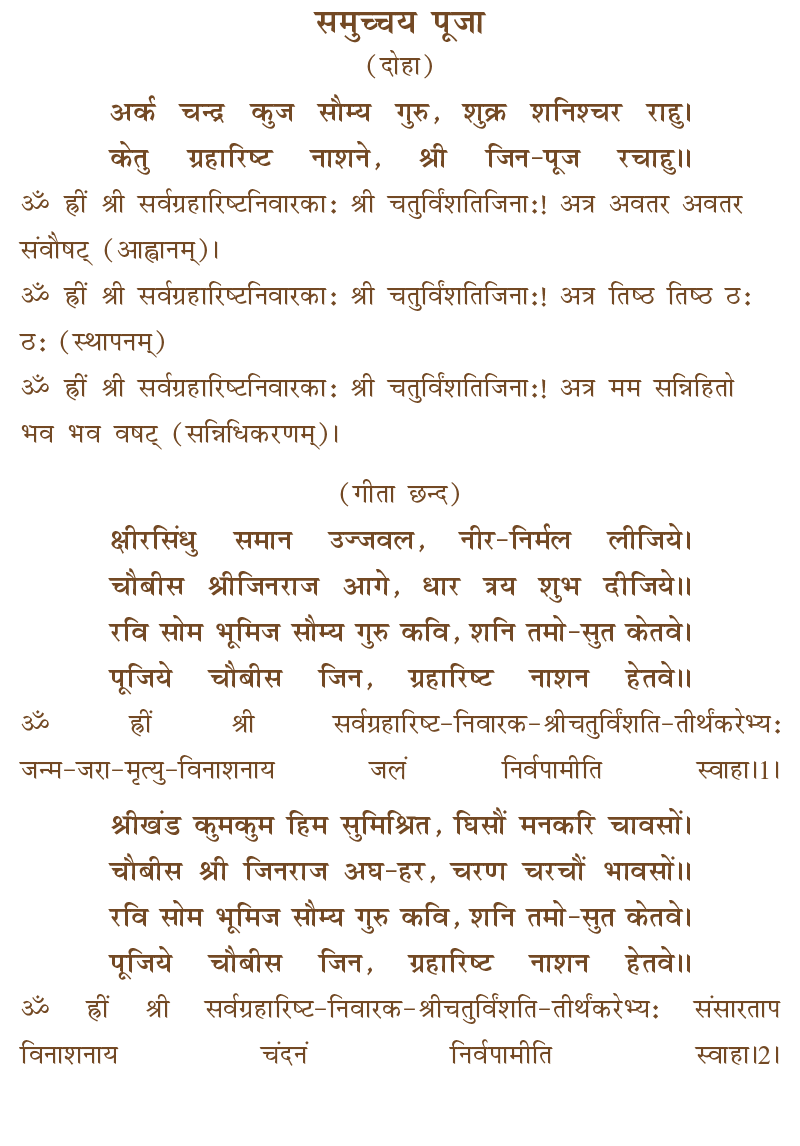 समुच्चय पूजा
(दोहा)
अर्क चन्द्र कुज सौम्य गुरु, शुक्र शनिश्चर राहु।
केतु ग्रहारिष्ट नाशने, श्री जिन-पूज रचाहु॥
ॐ ह्रीं श्री सर्वग्रहारिष्टनिवारका: श्री चतुर्विंशतिजिना:! अत्र अवतर अवतर
संवौषट् (आह्वानम्)।
ॐ ह्रीं श्री सर्वग्रहारिष्टनिवारका: श्री चतुर्विंशतिजिना:! अत्र तिष्ठ तिष्ठ ठ:
ठ: (स्थापनम्)
ॐ ह्रीं श्री सर्वग्रहारिष्टनिवारका: श्री चतुर्विंशतिजिना:! अत्र मम सन्निहितो
भव भव वषट् (सन्निधिकरणम्)।
(गीता छन्द)
क्षीरसिंधु समान उज्जवल, नीर-निर्मल लीजिये।
चौबीस श्रीजिनराज आगे, धार त्रय शुभ दीजिये॥
रवि सोम भूमिज सौम्य गुरु कवि, शनि तमो-सुत केतवे।
पूजिये चौबीस जिन, ग्रहारिष्ट नाशन हेतवे॥
ॐ ह्रीं श्री सर्वग्रहारिष्ट-निवारक-श्रीचतुर्विंशति-तीर्थंकरेभ्य:
जन्म-जरा-मृत्यु-विनाशनाय जलं निर्वपामीति स्वाहा।1।
श्रीखंड कुमकुम हिम सुमिश्रित, घिसौं मनकरि चावसों।
चौबीस श्री जिनराज अघ-हर, चरण चरचौं भावसों॥
रवि सोम भूमिज सौम्य गुरु कवि, शनि तमो-सुत केतवे।
पूजिये चौबीस जिन, ग्रहारिष्ट नाशन हेतवे॥
ॐ ह्रीं श्री सर्वग्रहारिष्ट-निवारक-श्रीचतुर्विंशति-तीर्थंकरेभ्य: संसारताप
विनाशनाय चंदनं निर्वपामीति स्वाहा।2।